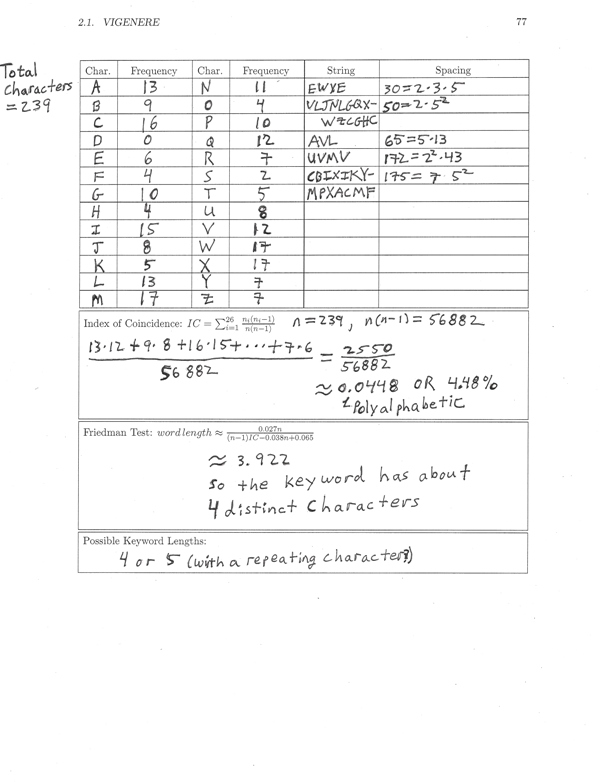 2.1. VIGENERE 77
Total
characters
= 239
Char. Frequency Char. Frequency String Spacing
A 13 N 11 EWYE 30=2·3·5
B 9 O 4 VLJNLGQX- 50=2·5²
C 16 P 10 WZCGHC
D 0 Q 12 AVL 65=5·13
E 6 R 7 UVMV 172=2²·43
F 4 S 2 CBIXIKY- 175=7·5²
G 10 T 5 MPXACMF
H 4 U 8
I 15 V 12
J 8 W 17
K 5 X 17
L 13 Y 7
M 17 Z 7
Index of Coincidence: IC = ∑_{i=1}^{26} n_i(n_i−1)/n(n−1) n=239, n(n-1)=56882
13·12+9·8+16·15+···+7·6 / 56882 = 2550 / 56882
≈ 0.0448 OR 4.48%
Polyalphabetic
Friedman Test: wordlength ≈ 0.027n/(n−1)IC−0.038n+0.065
≈ 3.922
So the keyword has about
4 distinct characters
Possible Keyword Lengths:
4 or 5 (with a repeating character?)